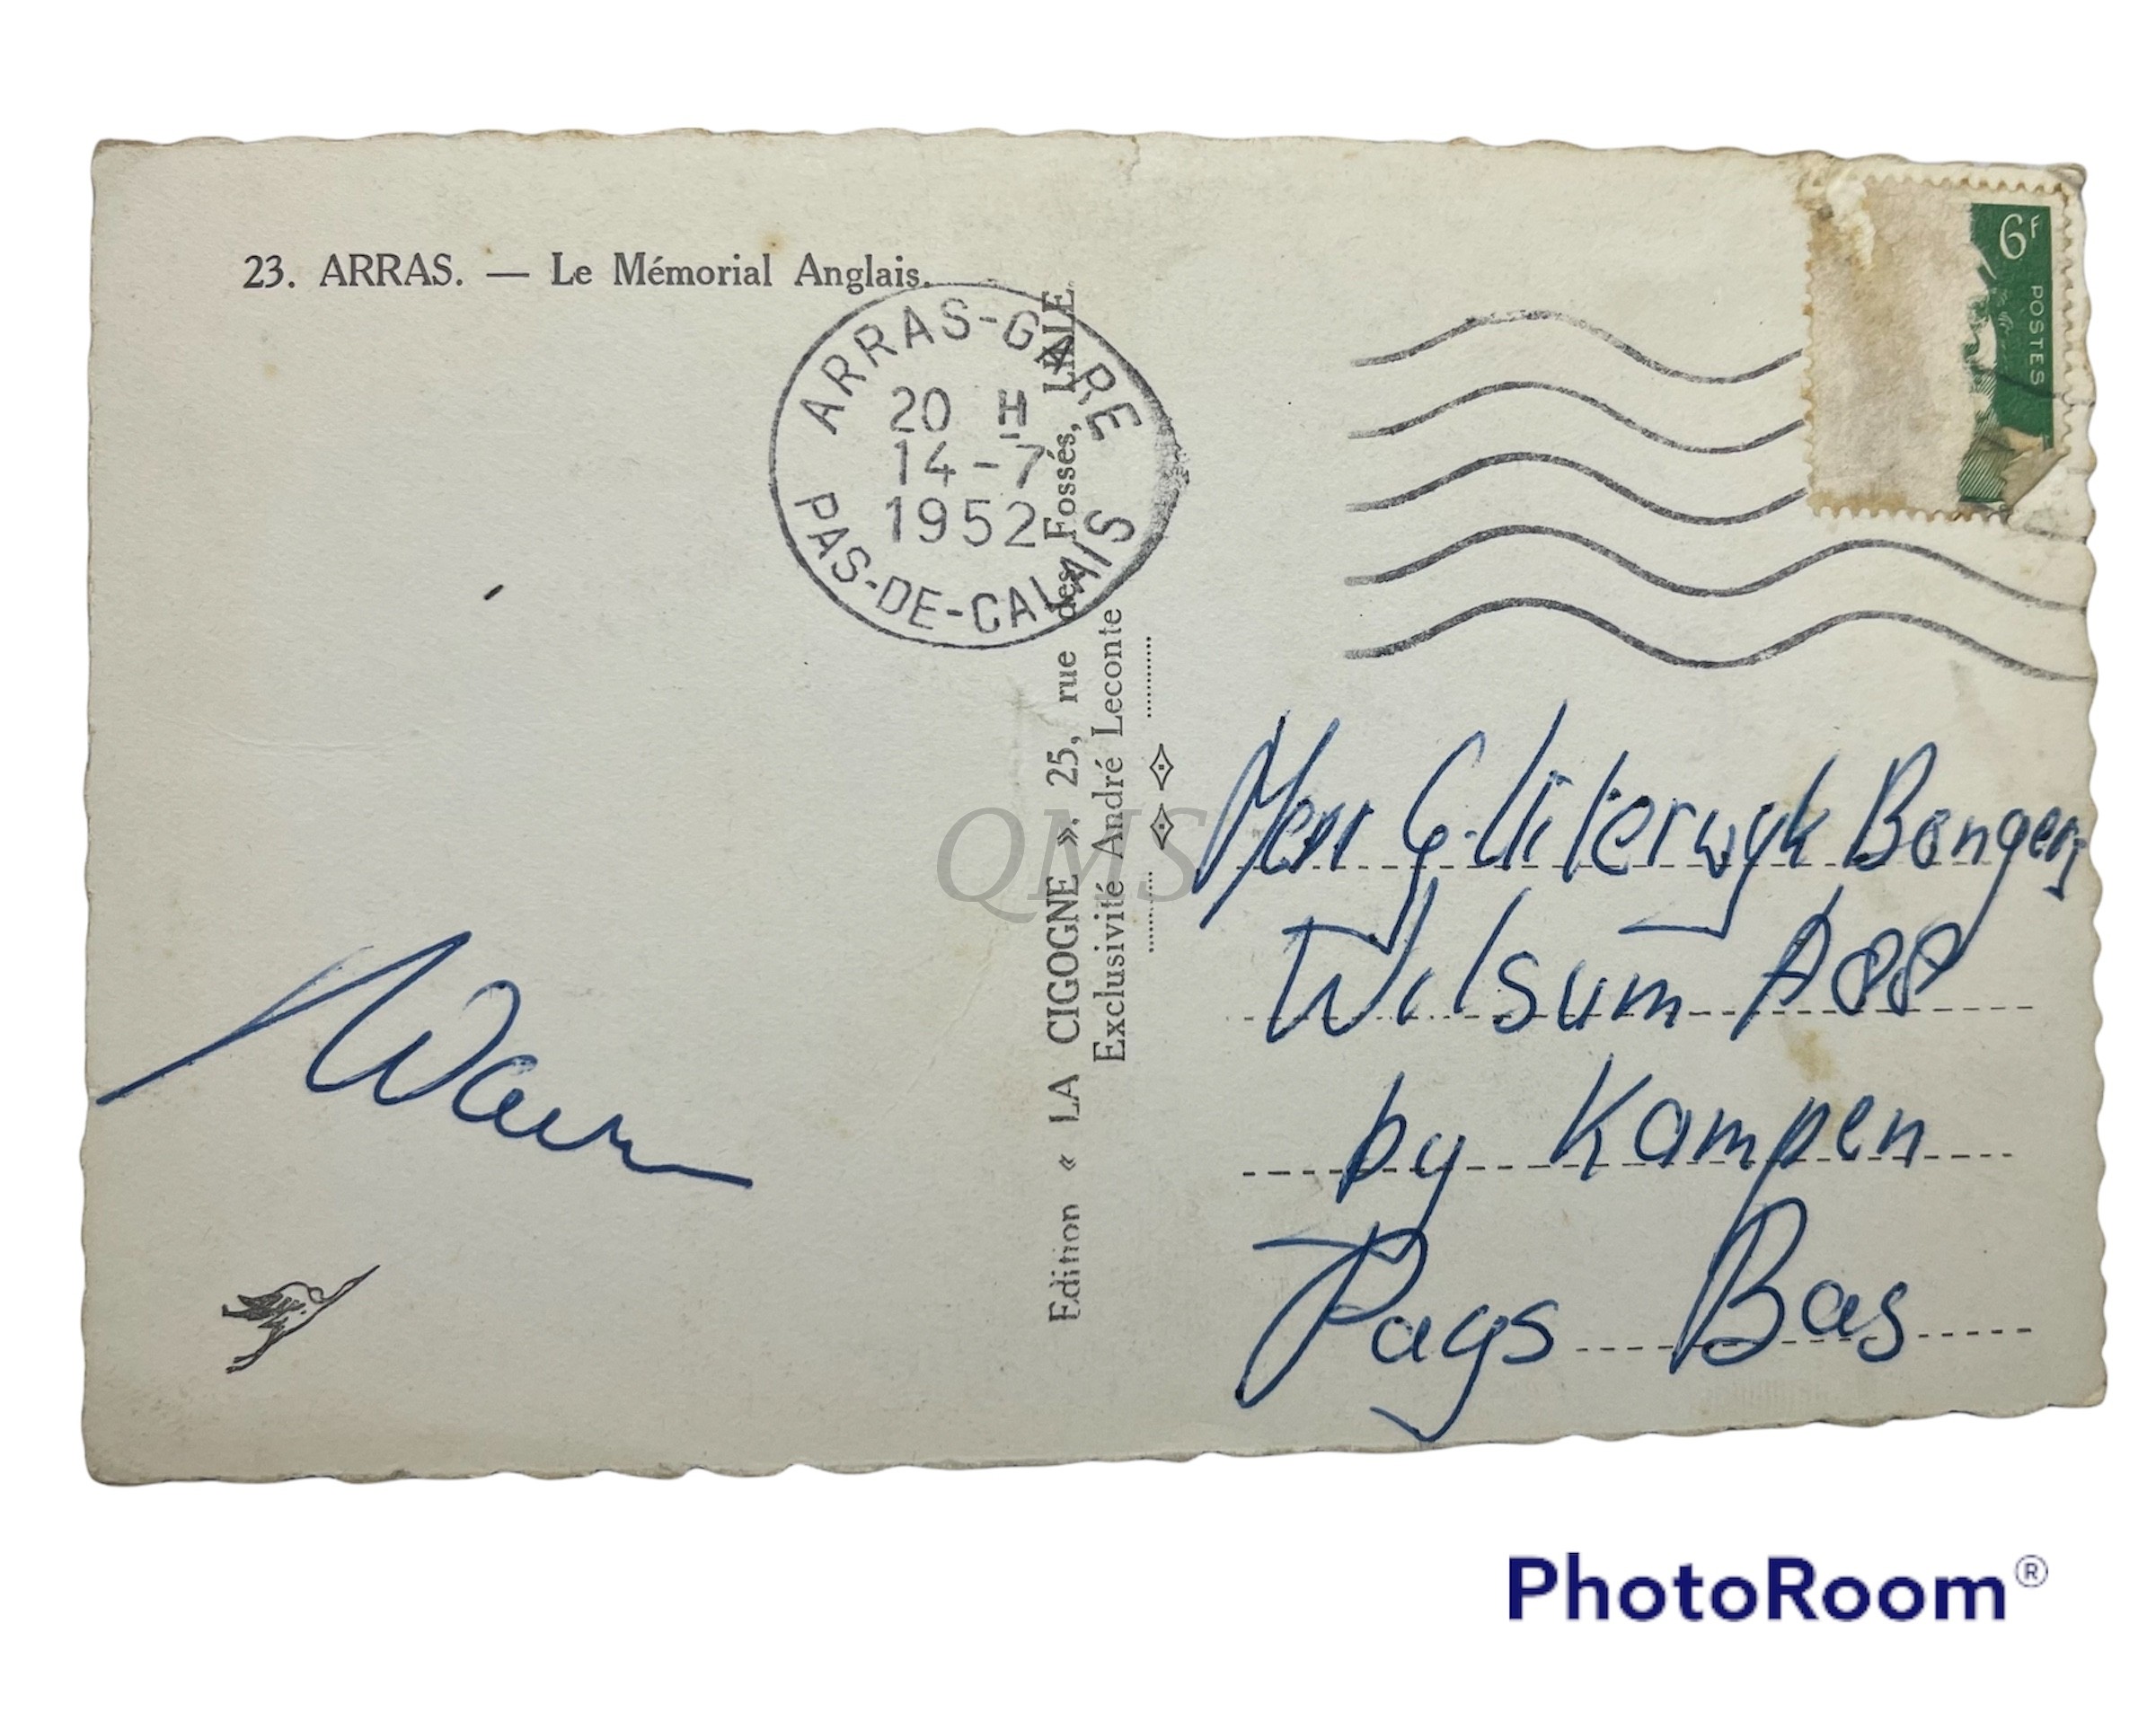 23. ARRAS. — Le Mémorial Anglais.
ARRAS-GARE
20 H
14-7
1952
PAS-DE-CALAIS
6F
POSTES
Edition « LA CIGOGNE ». 25, rue des Fossés, LILLE
Exclusivité André Leconte
QMS
G. Uiterwyk Bongers
Wilsum A88
by Kampen
Pays Bas
PhotoRoom®